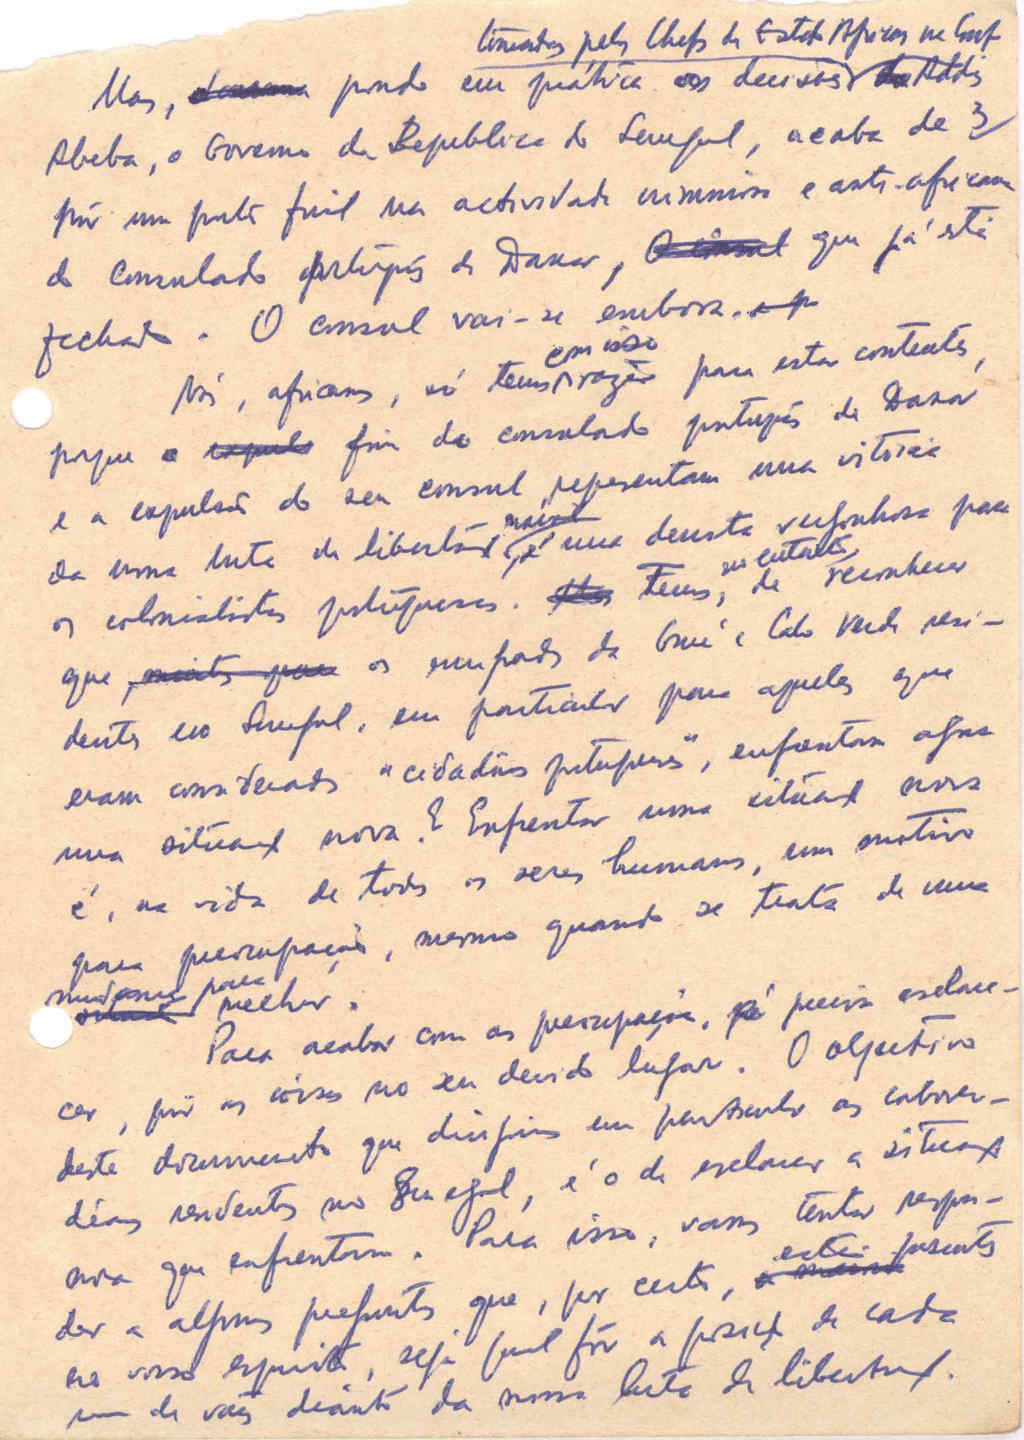 tomadas pelos Chefs de Estado Africanos na Conf.
Mas, pondo em prática as decisões de Addis
Abeba, o Governo da República do Senegal, acaba de
pôr um ponto final na actividade criminosa e anti-africana
do consulado português de Dakar, que já está
fechado. O consul vai-se embora.
com isso
Nós, africanos, só temos razão para estar contentes,
porque o fim do consulado português de Dakar
e a expulsão do seu consul, representam uma vitória
da nossa luta de libertação e uma derrota vergonhosa para
no entanto,
os colonialistas portugueses. Temos, de reconhecer
que os emigrados da Guiné e Cabo Verde resi-
dentes no Senegal, em particular para aqueles que
eram considerados "cidadãos portugueses", enfrentam agora
uma situação nova. E Enfrentar uma situação nova
é, na vida de todos os seres humanos, um motivo
para preocupação, mesmo quando se trata de uma
mudança para
melhor.
Para acabar com as preocupações, é preciso esclare-
cer, pôr as coisas no seu devido lugar. O objectivo
deste documento que dirigimos em particular aos cabover-
deanos residentes no Senegal, é o de esclarecer a situação
nova que enfrentam. Para isso, vamos tentar respon-
der a algumas perguntas que, por certo, estão presentes
no vosso espírito, seja qual fôr a posição de cada
um de vós diante da nossa luta de libertação.